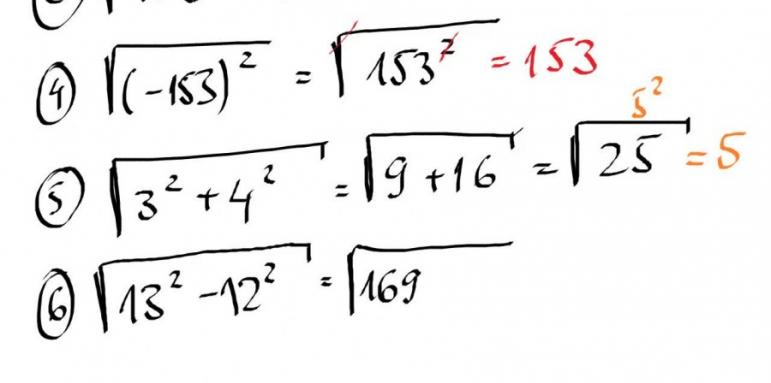 ④ √(-153)² = √153² = 153
⑤ √3² + 4² = √9 + 16 = √25 = 5
5²
⑥ √13² - 12² = √169